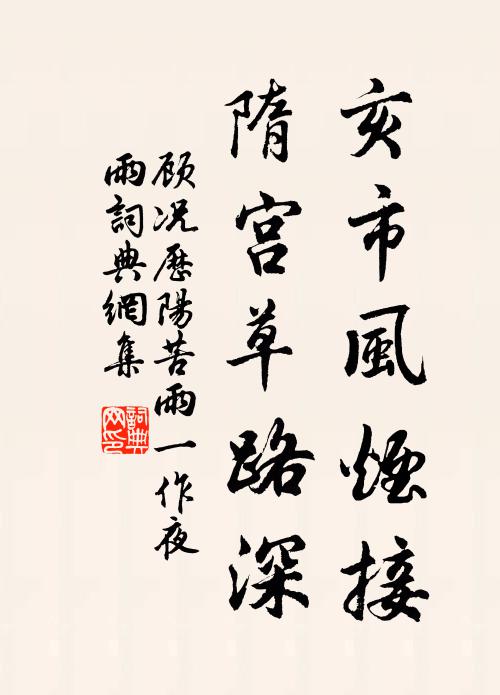 亥市風煙接
隋宮草路深
顾况歷陽苦雨一作夜
雨詞典網集
詞典
网印